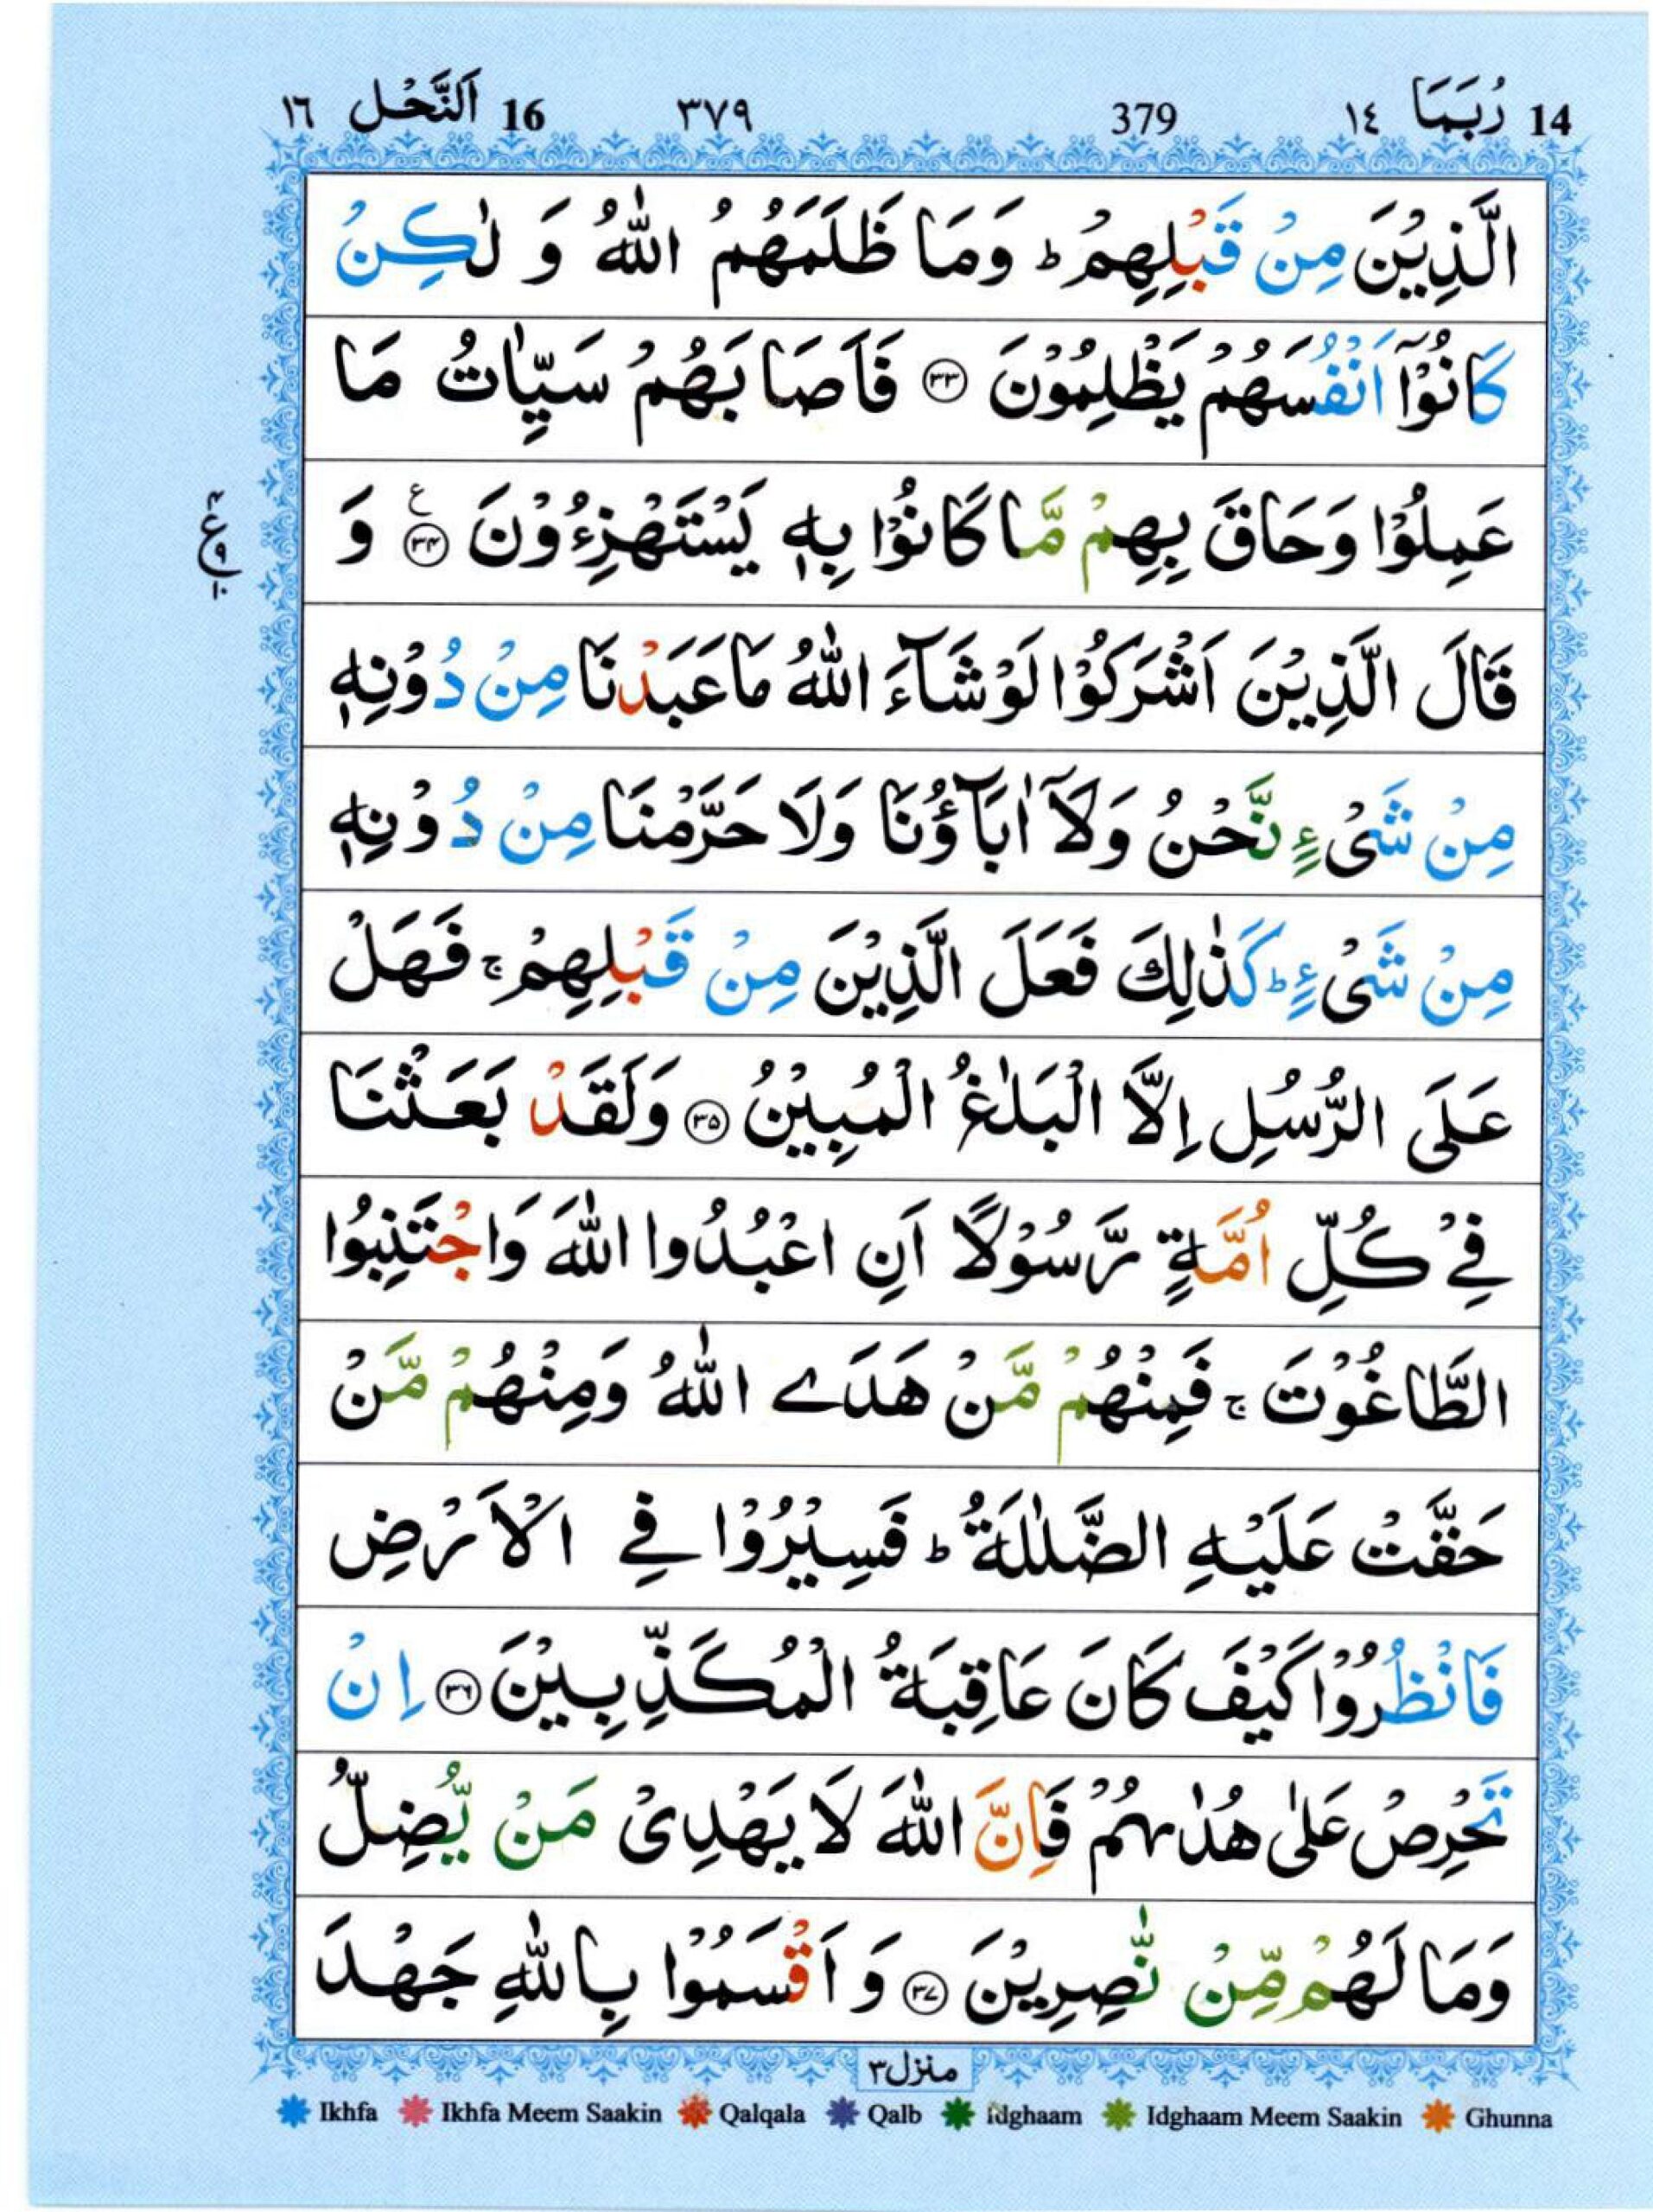 14 رُبَمَا ١٤ 379 ٣٧٩ 16 اَلنَّحْل ١٦
الَّذِيْنَ مِنْ قَبْلِهِمْ ؕ وَمَا ظَلَمَهُمُ اللّٰهُ وَ لٰكِنْ
كَانُوْۤا اَنْفُسَهُمْ يَظْلِمُوْنَ ۝۳۳ فَاَصَابَهُمْ سَيِّاٰتُ مَا
عَمِلُوْا وَحَاقَ بِهِمْ مَّا كَانُوْا بِهٖ يَسْتَهْزِءُوْنَ ۝۳۴ ع وَ
ع ۴ ۹ ۱۰
قَالَ الَّذِيْنَ اَشْرَكُوْا لَوْ شَآءَ اللّٰهُ مَا عَبَدْنَا مِنْ دُوْنِهٖ
مِنْ شَىْءٍ نَّحْنُ وَلَاۤ اٰبَآؤُنَا وَلَا حَرَّمْنَا مِنْ دُوْنِهٖ
مِنْ شَىْءٍ ؕ كَذٰلِكَ فَعَلَ الَّذِيْنَ مِنْ قَبْلِهِمْ ۚ فَهَلْ
عَلَى الرُّسُلِ اِلَّا الْبَلٰغُ الْمُبِيْنُ ۝۳۵ وَلَقَدْ بَعَثْنَا
فِىْ كُلِّ اُمَّةٍ رَّسُوْلًا اَنِ اعْبُدُوا اللّٰهَ وَاجْتَنِبُوا
الطَّاغُوْتَ ۚ فَمِنْهُمْ مَّنْ هَدَے اللّٰهُ وَمِنْهُمْ مَّنْ
حَقَّتْ عَلَيْهِ الضَّلٰلَةُ ؕ فَسِيْرُوْا فِے الْاَرْضِ
فَانْظُرُوْا كَيْفَ كَانَ عَاقِبَةُ الْمُكَذِّبِيْنَ ۝۳۶ اِنْ
تَحْرِصْ عَلٰى هُدٰىهُمْ فَاِنَّ اللّٰهَ لَا يَهْدِىْ مَنْ يُّضِلُّ
وَمَا لَهُمْ مِّنْ نّٰصِرِيْنَ ۝۳۷ وَ اَقْسَمُوْا بِاللّٰهِ جَهْدَ
منزل۳
Ikhfa Ikhfa Meem Saakin Qalqala Qalb Idghaam Idghaam Meem Saakin Ghunna